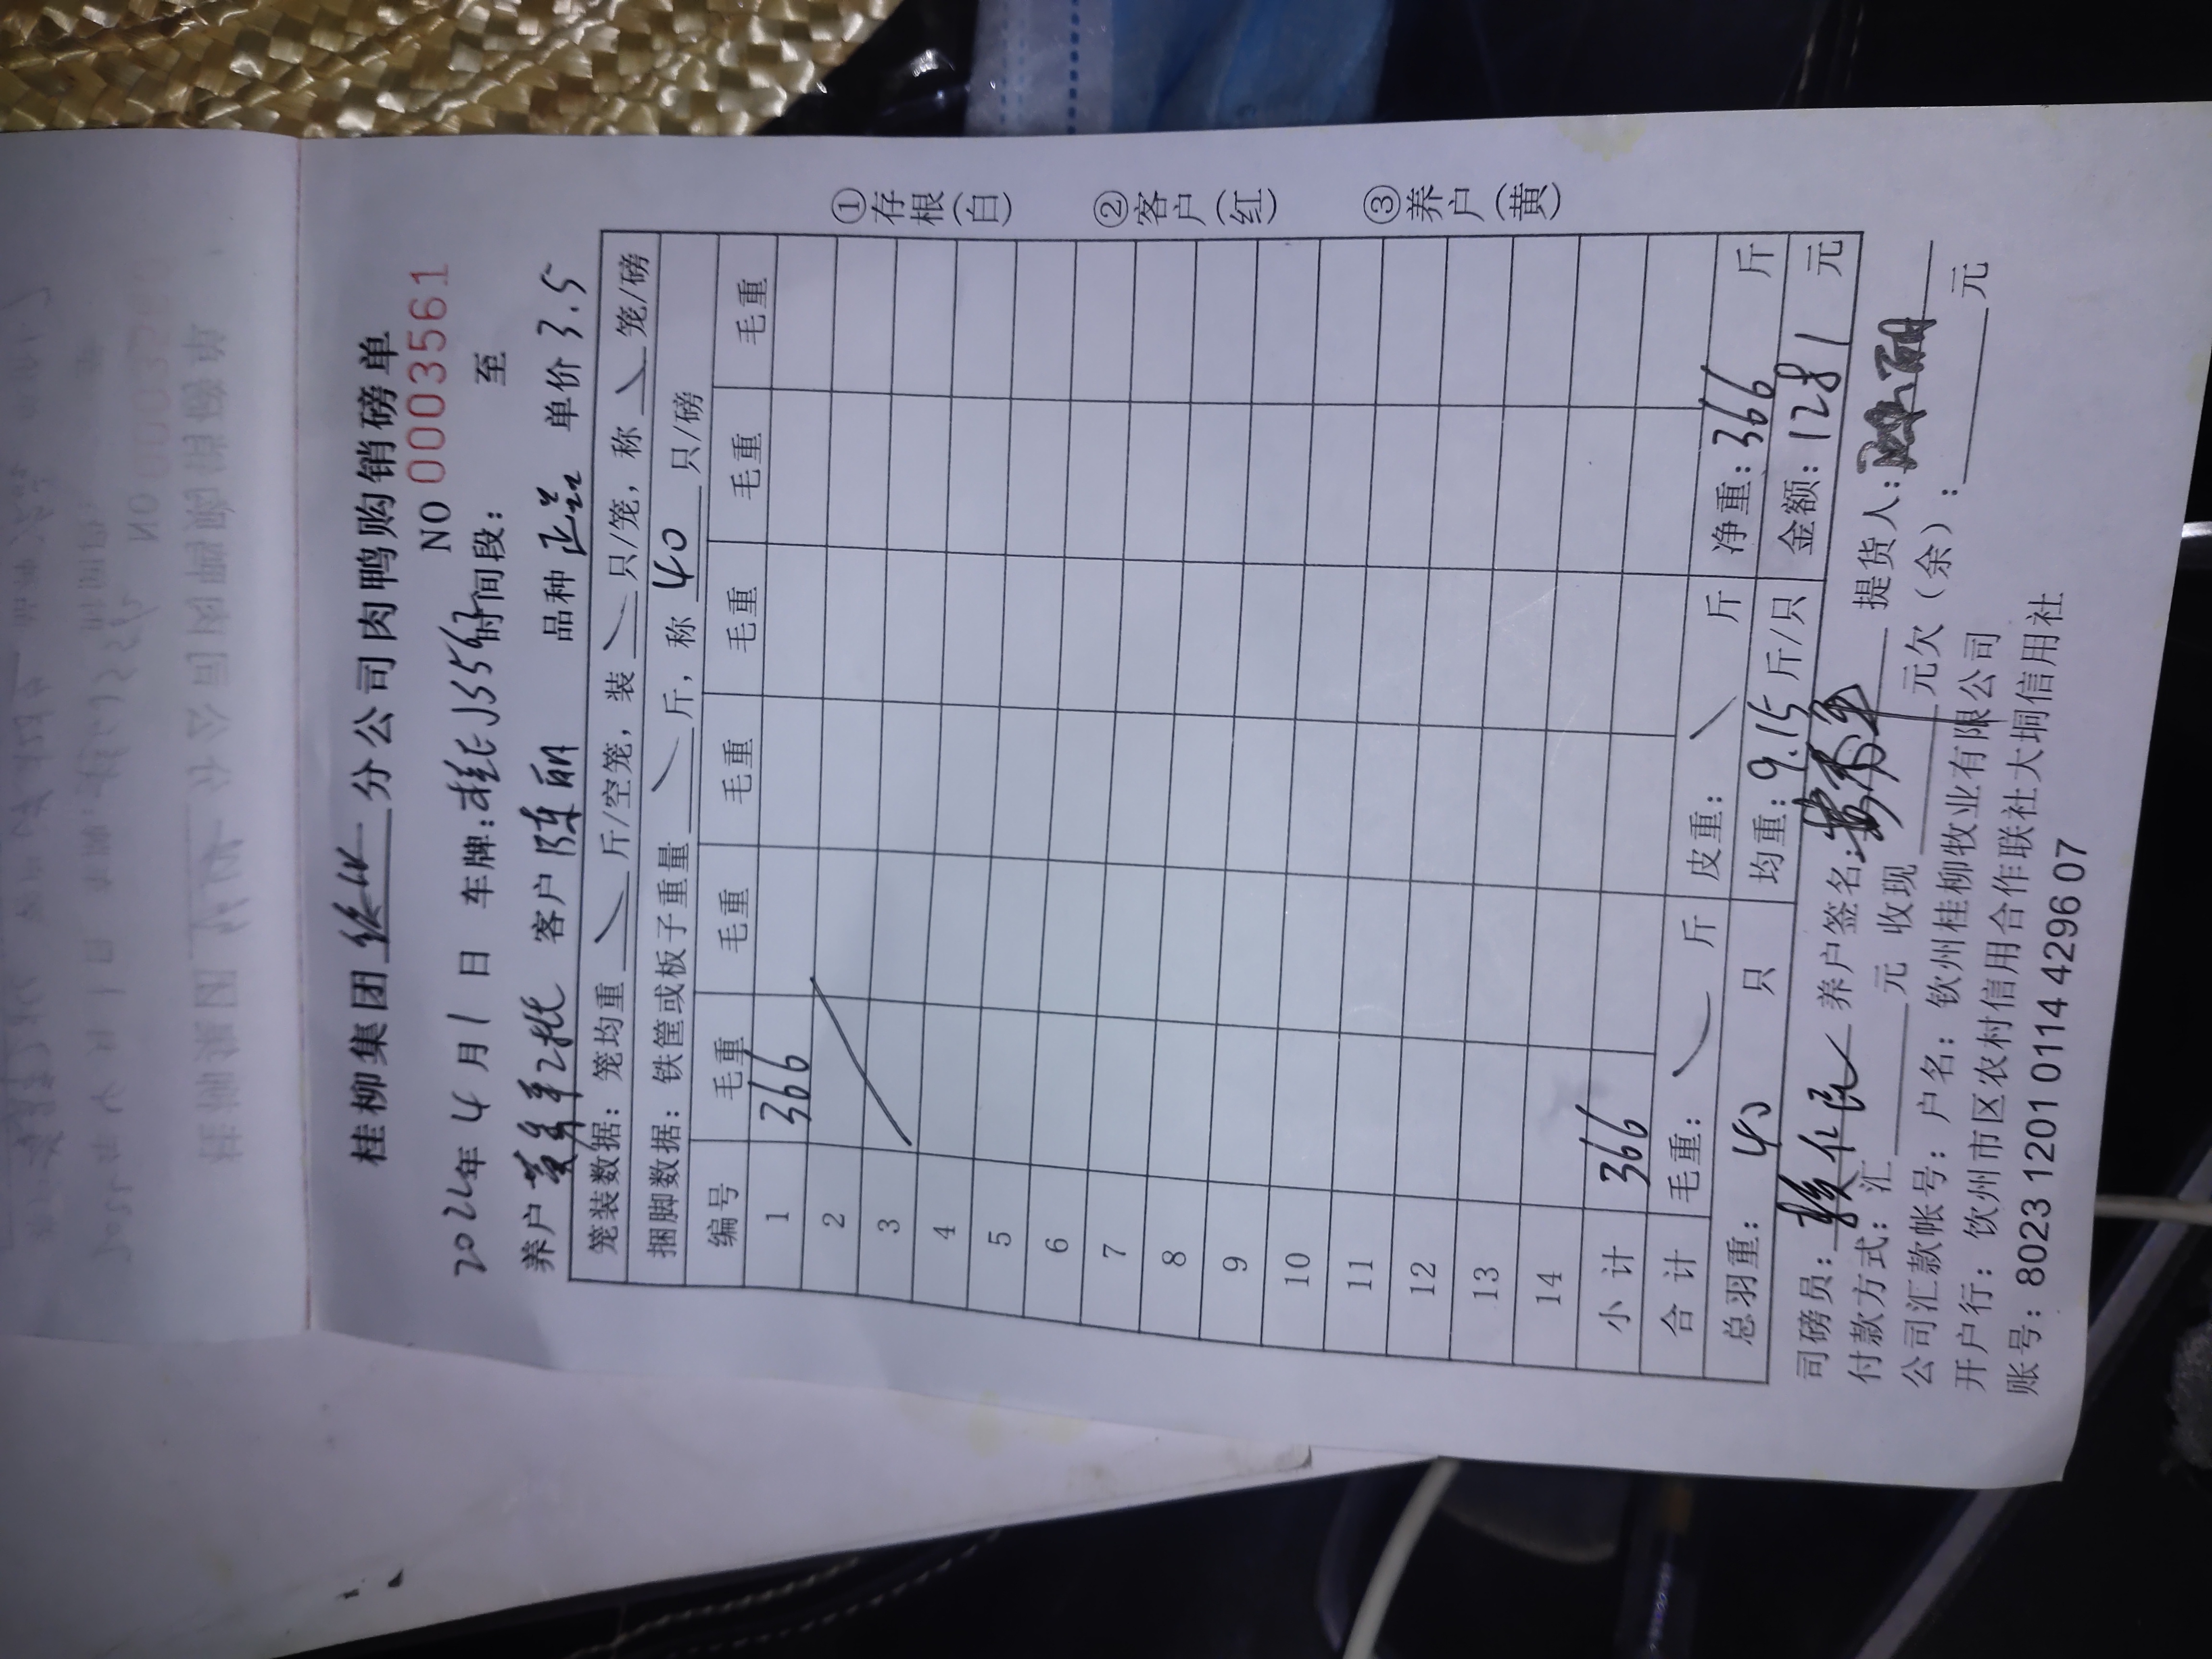 桂柳集团 分公司肉鸭购销磅单
NO 0003561
2022年4月1日 车牌:桂EJ5567 时间段: 至
养户 黄年2批 客户 陈丽 品种 正品 单价 3.5
笼装数据:笼均重 斤/空笼,装 只/笼,称 笼/磅
捆脚数据:铁筐或板子重量 斤,称 40 只/磅
编号 毛重 毛重 毛重 毛重 毛重 毛重
1 366
2
3
4
5
6
7
8
9
10
11
12
13
14
小计 366
合计 毛重: 斤 皮重: 斤 净重:366 斤
总羽重:40 只 均重:9.15 斤/只 金额:1281 元
司磅员: 养户签名: 提货人:
付款方式:汇 元 收现 元欠(余): 元
公司汇款帐号:户名:钦州桂柳牧业有限公司
开户行:钦州市区农村信用合作联社大垌信用社
账号:8023 1201 0114 4296 07
①存根(白)
②客户(红)
③养户(黄)